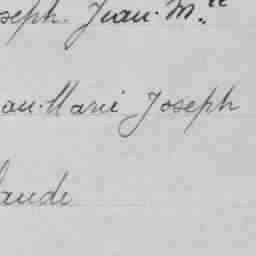 seph. Jean. M.ie
an-Marie Joseph
laude